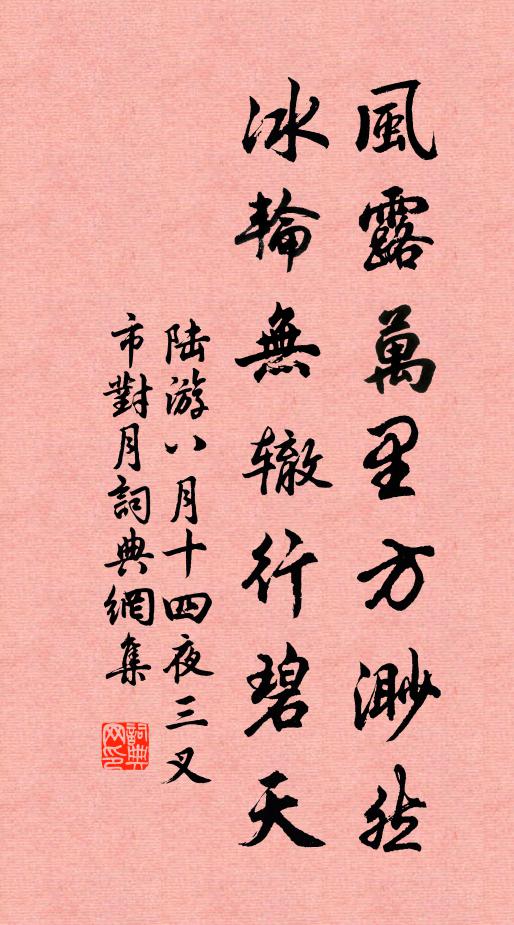 風露萬里方渺然
冰輪無辙行碧天
陆游八月十四夜三叉
市對月詞典網集
詞典网印